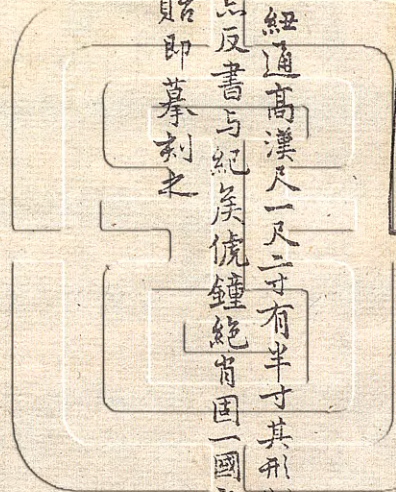 紐通高漢尺一尺二寸有半寸其形
反書与紀矦俿鐘絶肖固一國
即摹刻之